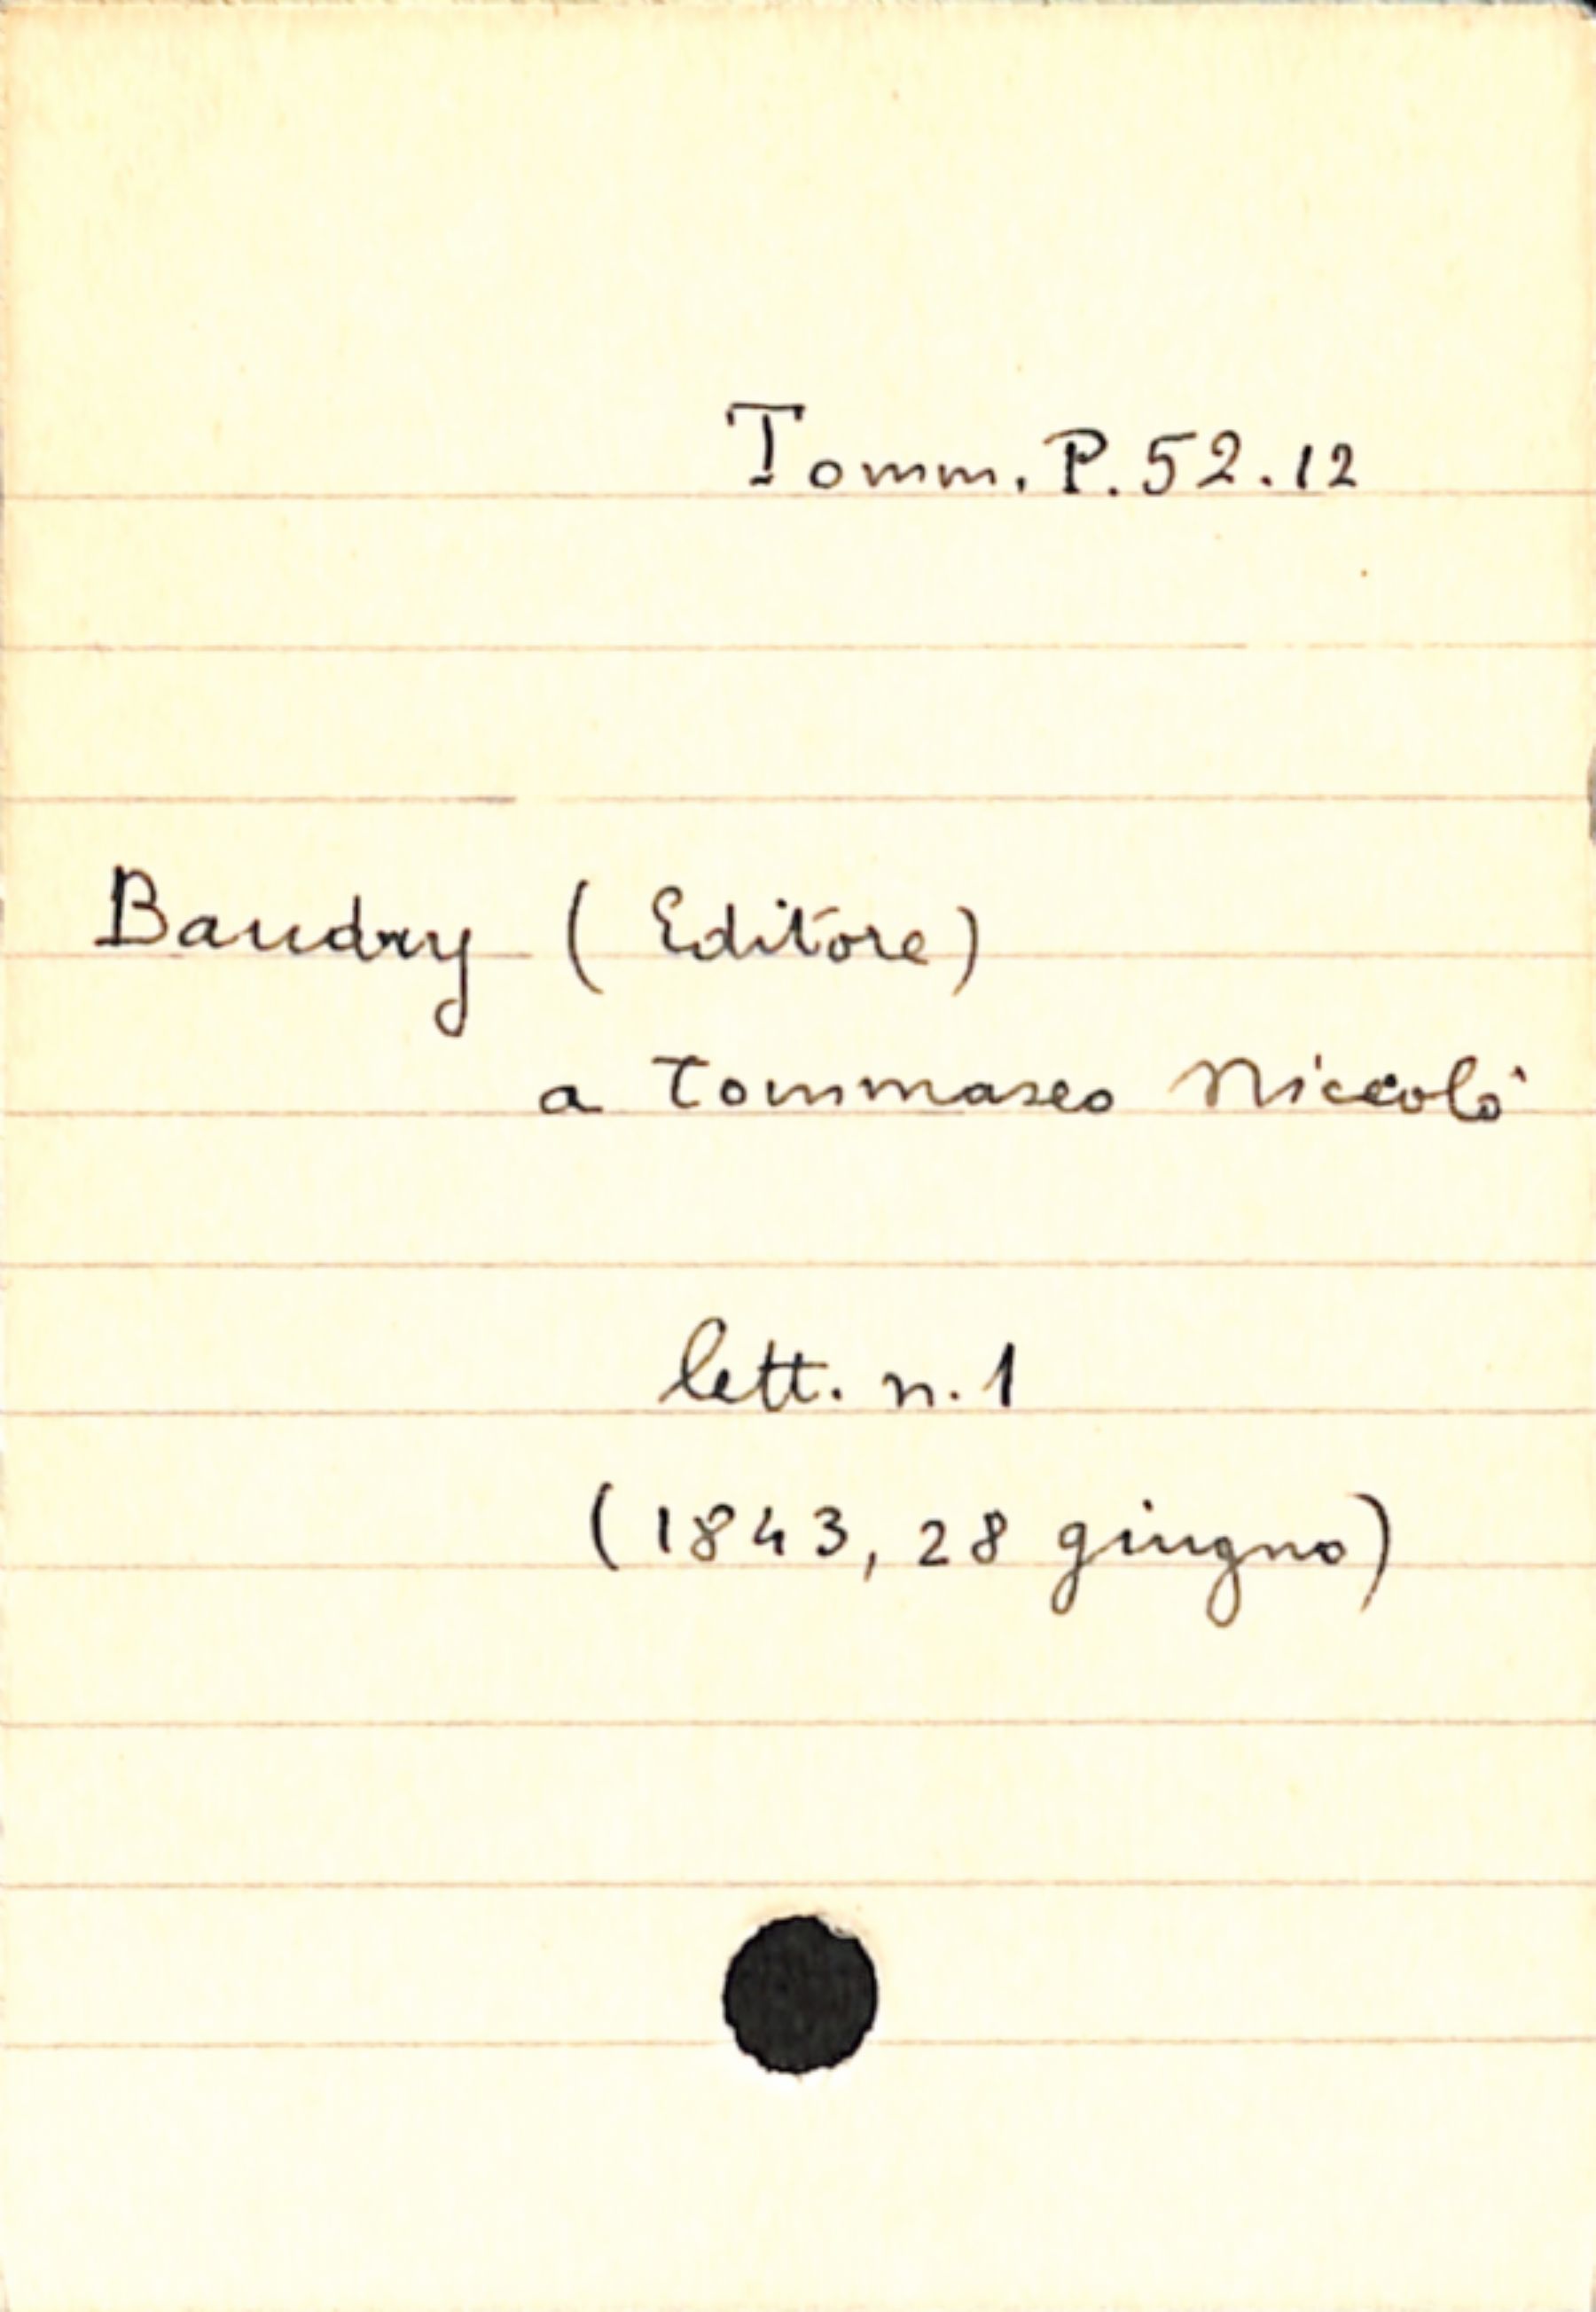 Tomm. P. 52. 12
Baudry (Editore)
a Tommaseo Niccolò
lett. n. 1
(1843, 28 giugno)